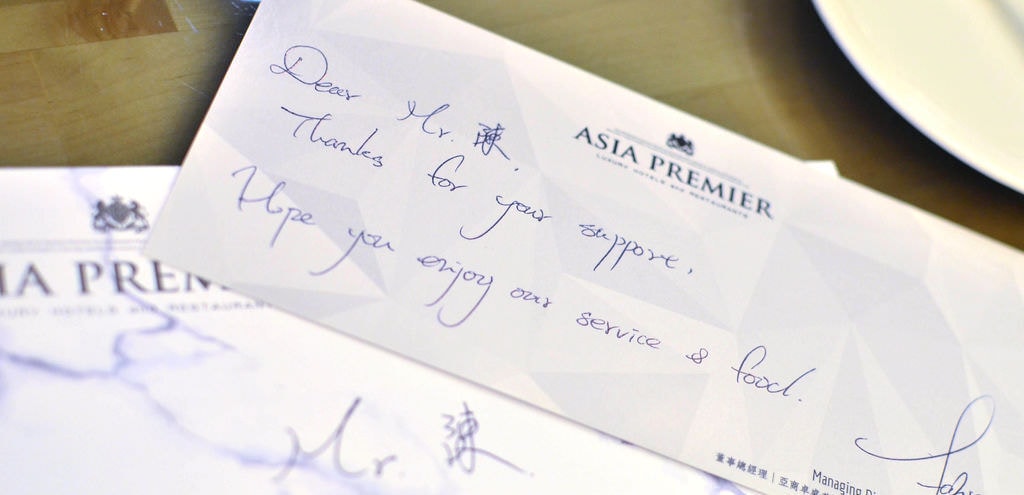 Dear Mr. 陳.
Thanks for your support.
Hope you enjoy our service & food.
ASIA PREMIER
LUXURY HOTELS and RESTAURANTS
董事總經理 | 亞商卓
Managing
IA PREM
LUXURY HOTELS and RESTAURAN
Mr. 陳.